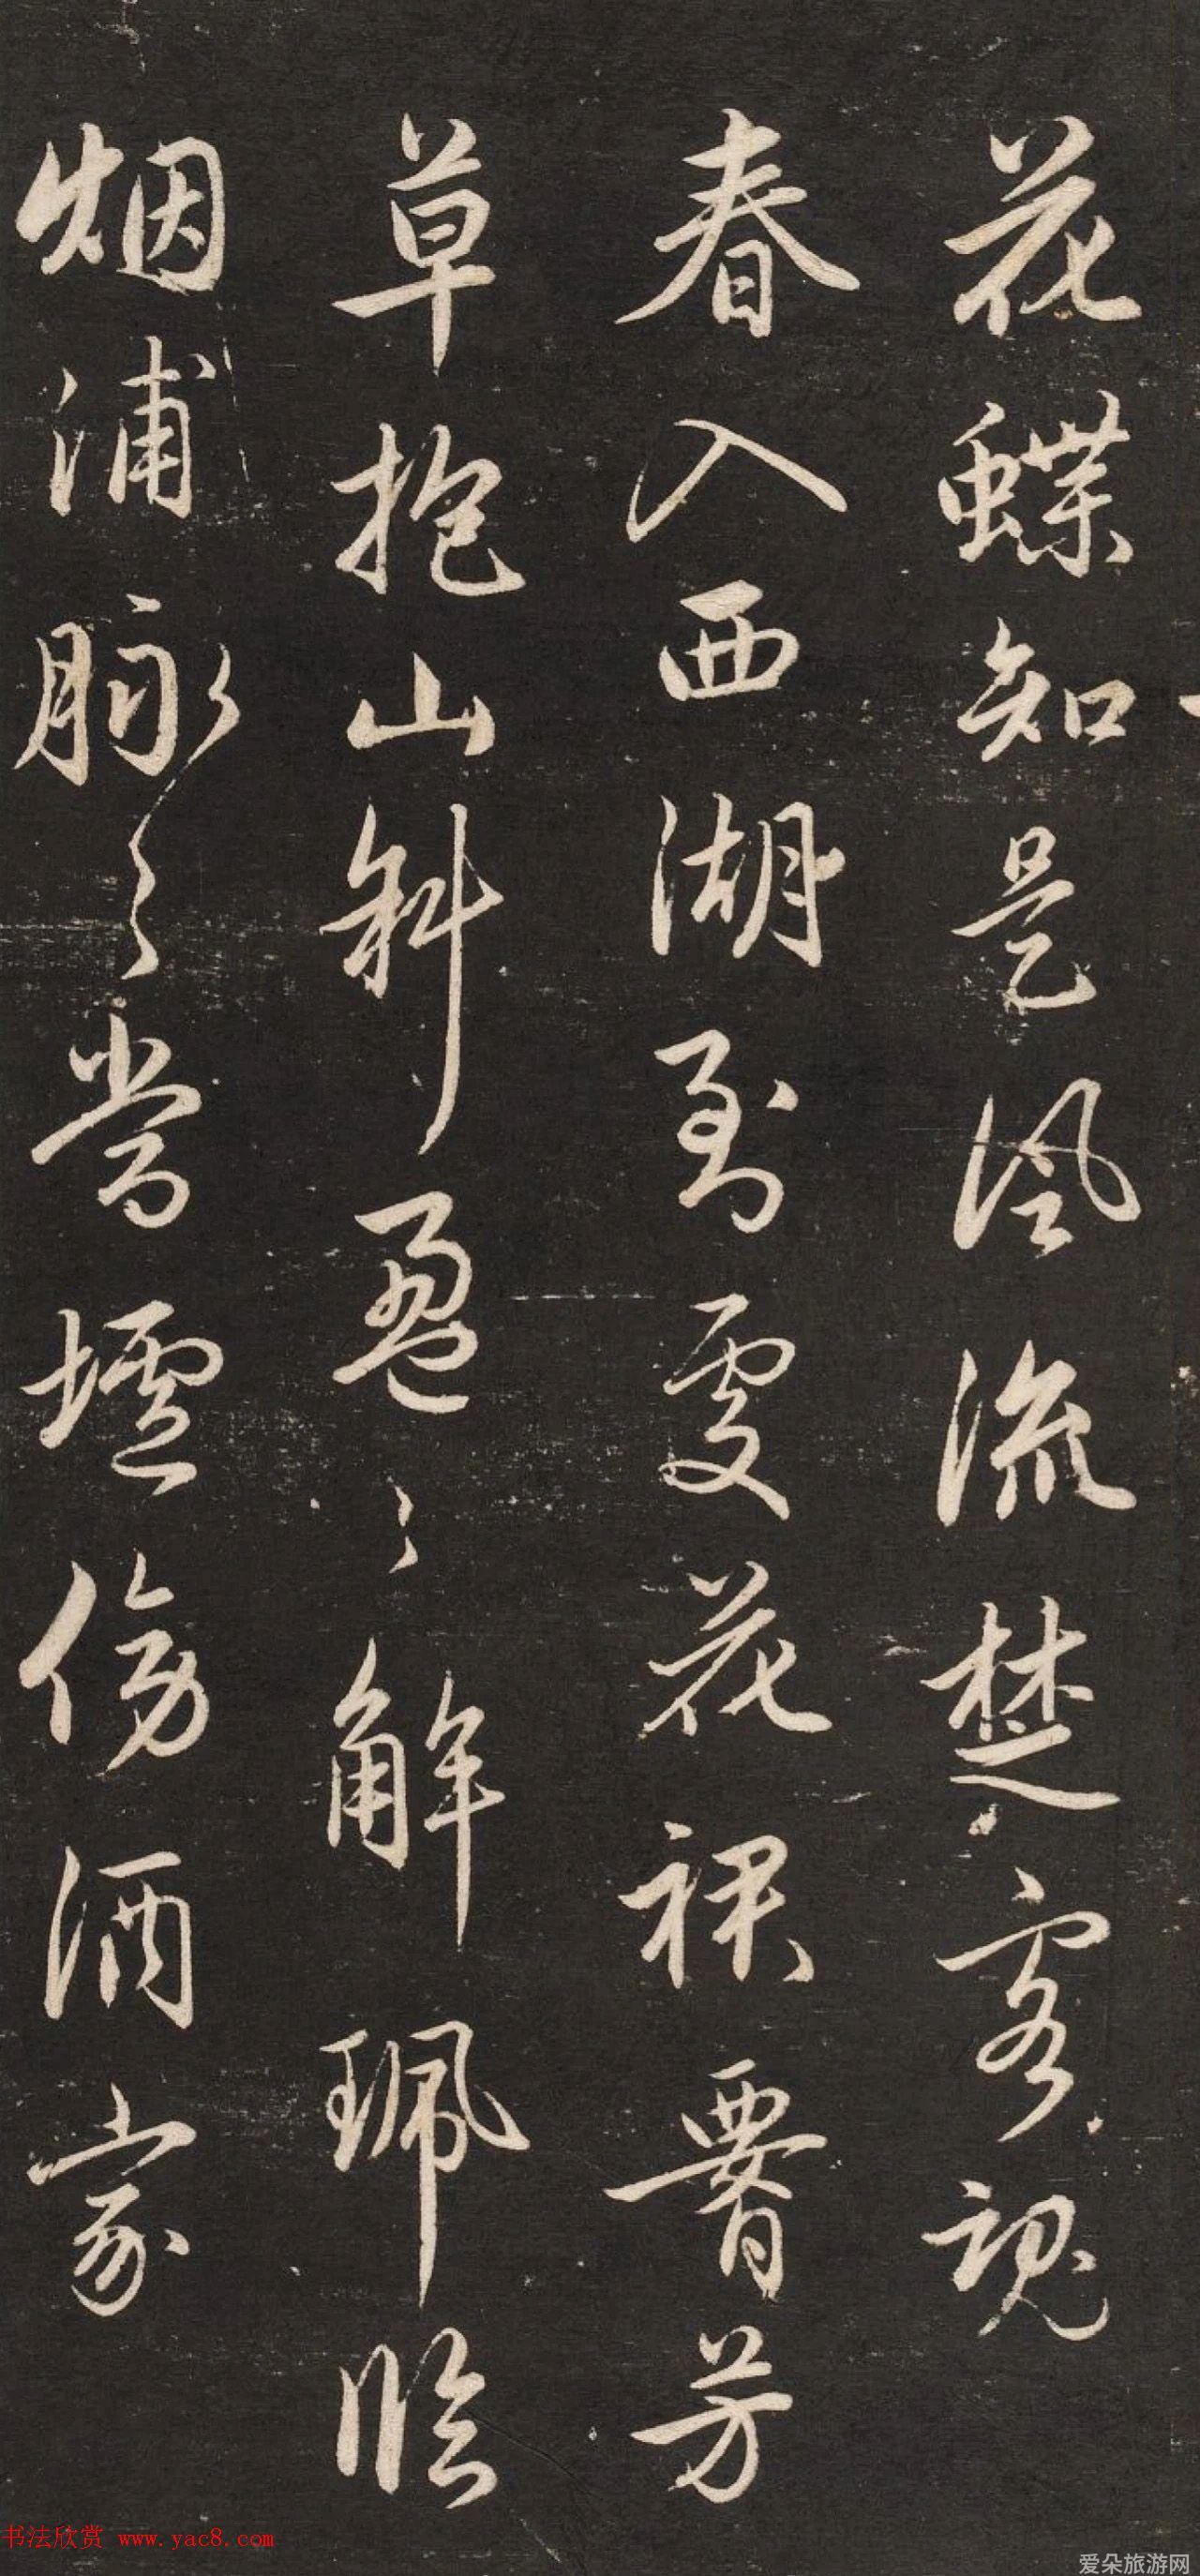 花蝶知是風流楚客魂
春入西湖到處花裙腰芳
草抱山斜盈〻解珮臨
烟浦脉〻當壚傍酒家
书法欣赏 www.yac8.com
爱朵旅游网